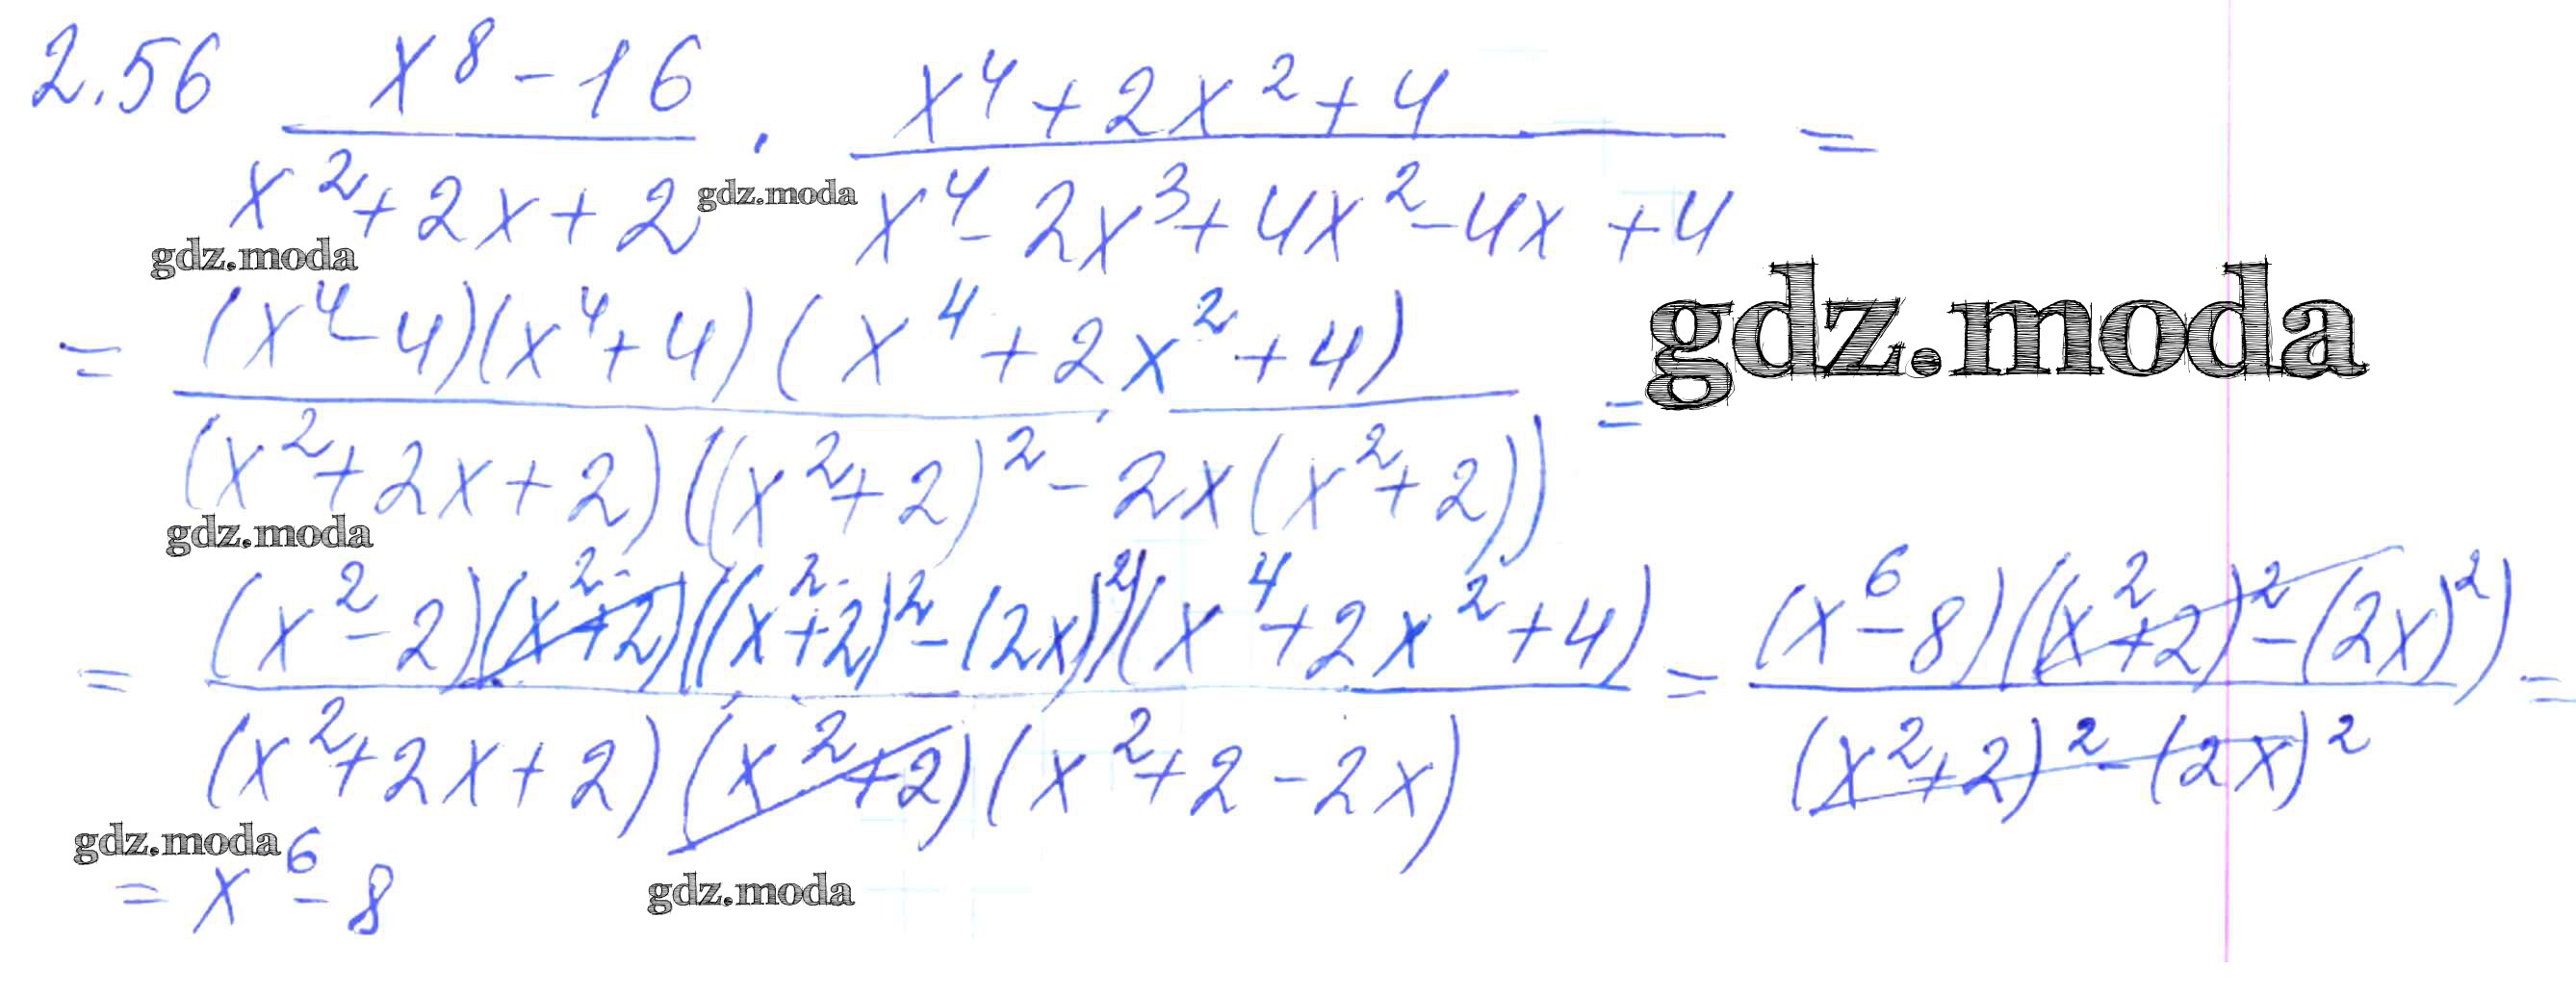 2.56 (x^8 - 16)/(x^2 + 2x + 2) · (x^4 + 2x^2 + 4)/(x^4 - 2x^3 + 4x^2 - 4x + 4) =
gdz.moda
gdz.moda
= ((x^4 - 4)(x^4 + 4)(x^4 + 2x^2 + 4))/((x^2 + 2x + 2)((x^2 + 2)^2 - 2x(x^2 + 2))) =
gdz.moda
gdz.moda
= ((x^2 - 2)(x^2 + 2)((x^2 + 2)^2 - (2x)^2)(x^4 + 2x^2 + 4))/((x^2 + 2x + 2)(x^2 + 2)(x^2 + 2 - 2x)) = ((x^6 - 8)((x^2 + 2)^2 - (2x)^2))/((x^2 + 2)^2 - (2x)^2) =
gdz.moda
= x^6 - 8
gdz.moda